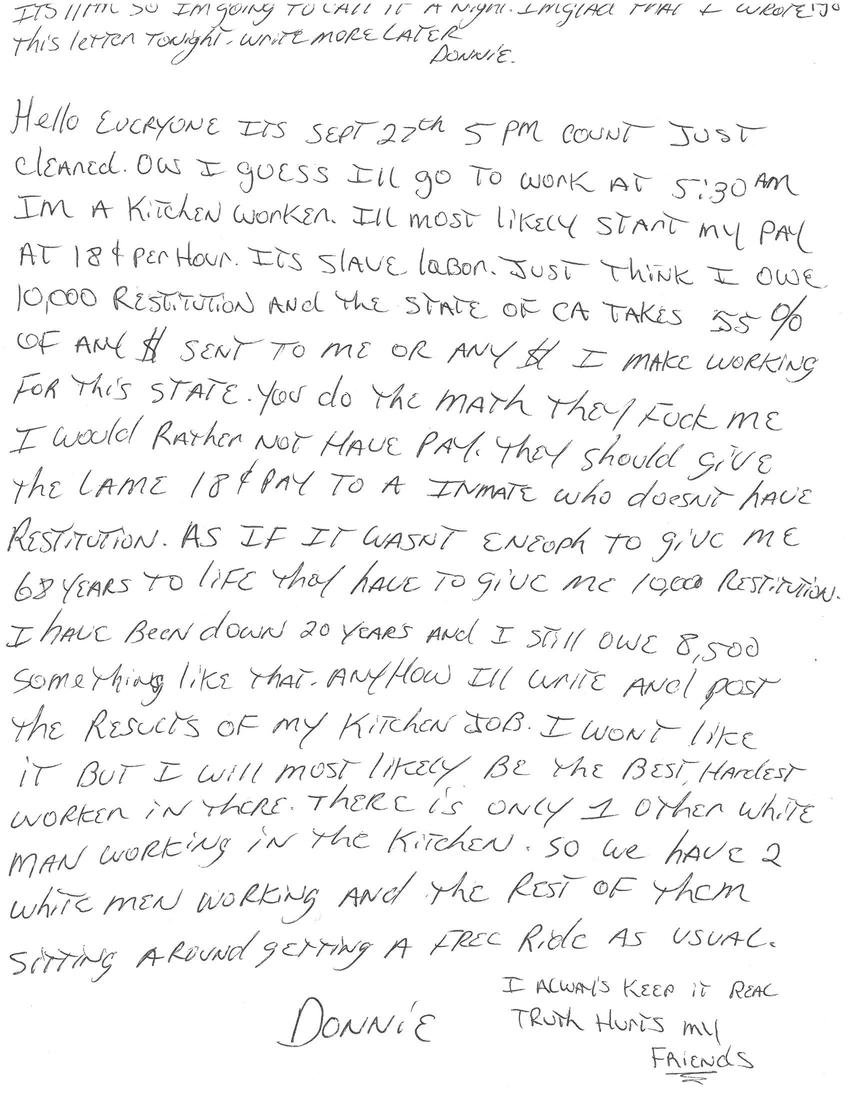 ITS 11PM SO IM GOING TO CALL IT A Night. IM glad THAT I WROTE
this letter Tonight. WRITE MORE LATER
DONNIE.
Hello EVERYONE ITS SEPT 27th 5 PM COUNT JUST
clEARED. OW I GUESS I'll go TO WORK AT 5:30 AM
IM A Kitchen worker. Ill most likely START my PAY
AT 18¢ Per Hour. ITS SlAVE labor. JUST Think I OWE
10,000 RESTITUTION ANd the STATE OF CA TAKES 55%
OF ANY $ SENT TO ME OR ANY $ I MAKE WORKING
FOR This STATE. You do the MATH They Fuck ME
I would RATHer NOT HAVE PAY. they should giVE
the LAME 18¢ PAY TO A INMATE who doesnt have
RESTITUTION. AS IF IT WASNT ENEOPH TO giVE ME
68 YEARS TO liFE they hAVE TO giVE ME 10,000 RESTITUTION.
I HAVE BEEN down 20 YEARS ANd I STill OWE 8,500
something like that. ANYHOW Ill WRITE ANd post
the RESULTS OF MY KITCHEN JOB. I WONT likE
iT BUT I will most likely BE the BEST, HArdEST
WORKER iN thERE. THERE is ONly 1 Other WhiTE
MAN WORKING iN the KITCHEN. SO WE hAVE 2
whiTE MEN WORKING ANd the REST OF thEM
SITTING AROUND gETTING A FREE RidE AS USUAL.
I ALWAY'S KEEP iT REAL
DONNiE
TRUTH HURTS my
FRIENdS